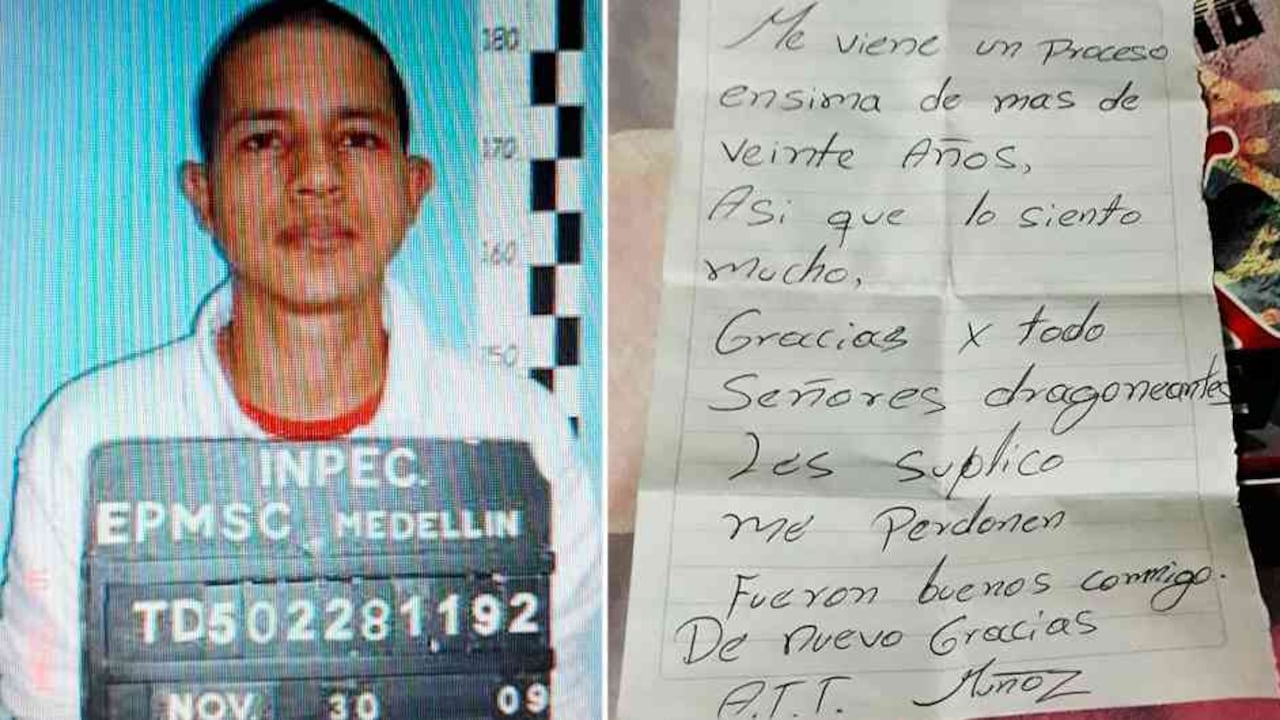 180
170
160
150
INPEC.
EPMSC MEDELLIN
TD502281192
NOV. 30 09
Me viene un Proceso
ensima de mas de
veinte Años,
Asi que lo siento
mucho,
Gracias x todo
Señores dragoneantes
Les suplico
me Perdonen
Fueron buenos conmigo.
De nuevo Gracias
A.T.T. Muñoz